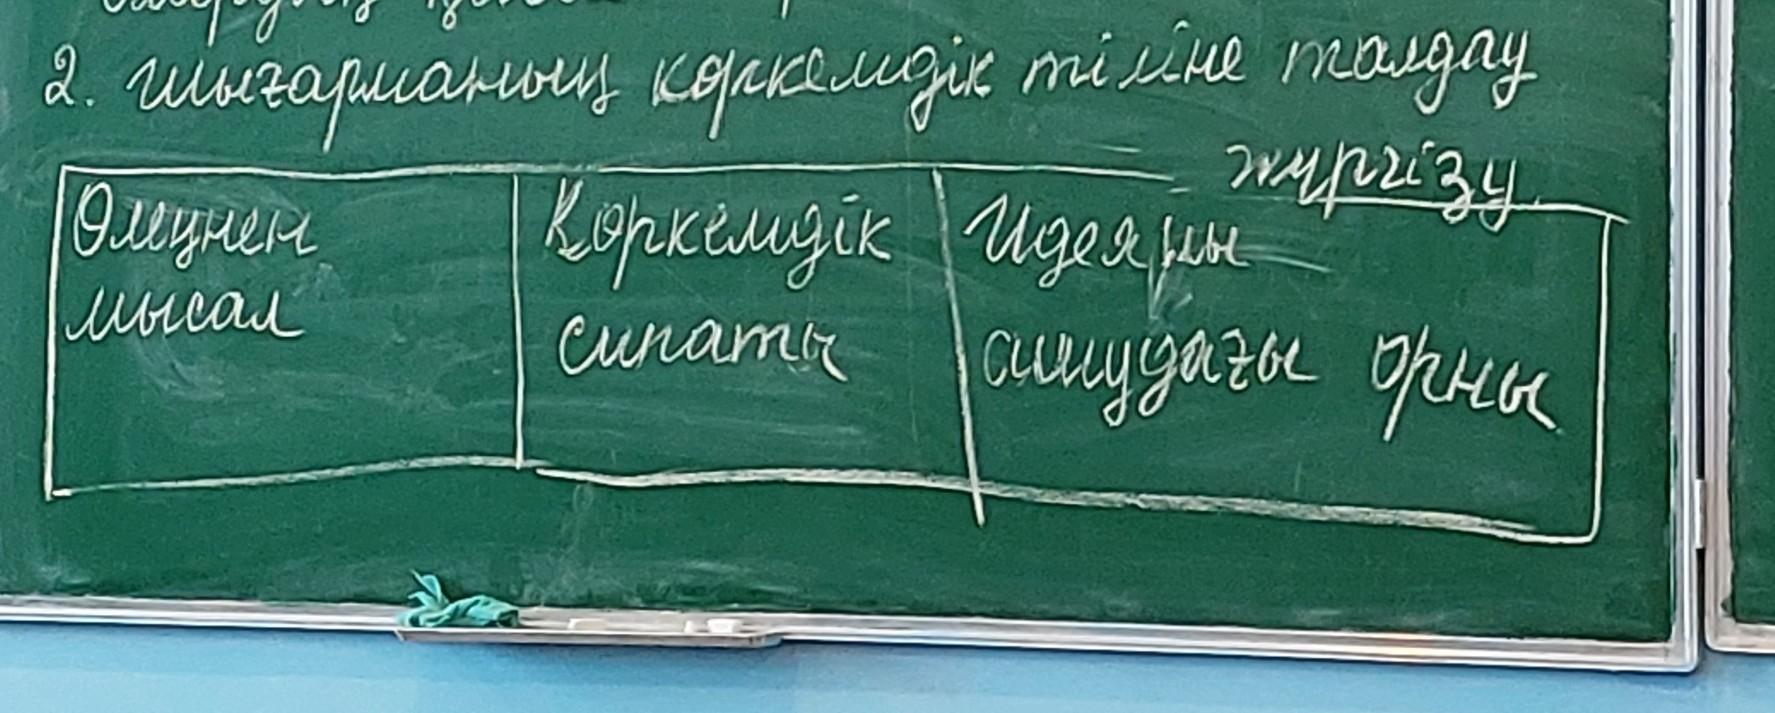 2. шығарманың көркемдік тіліне талдау
жүргізу.
Өлеңнен
мысал
Көркемдік
сипаты
Идеяны
ашудағы орны